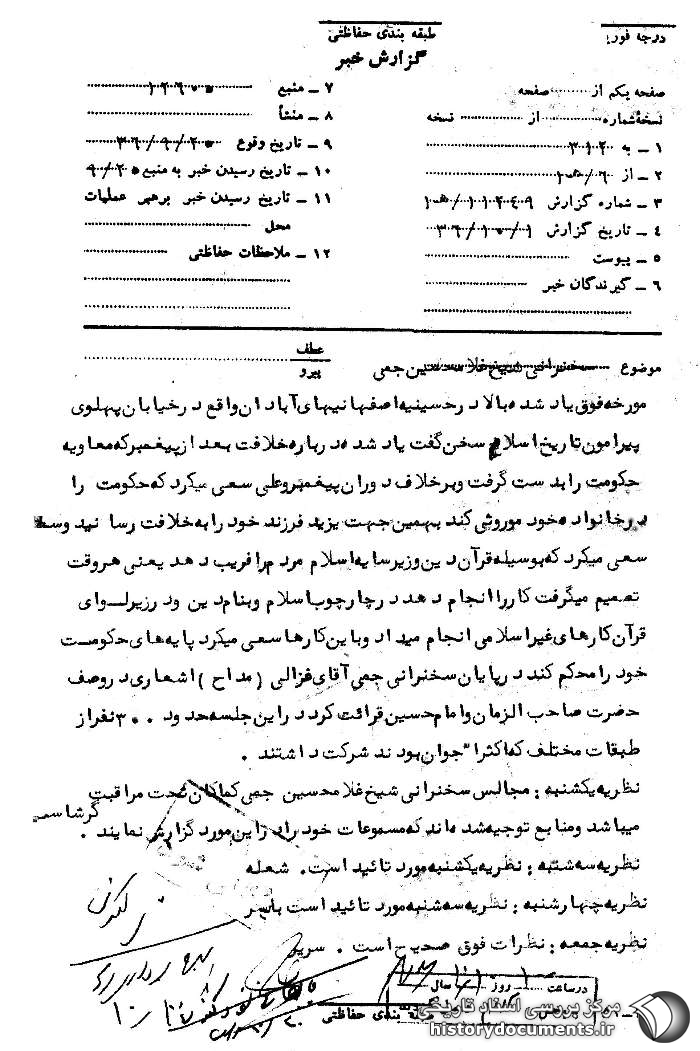 درجه فوریـ
طبقه بندی حفاظتی
گزارش خبر
صفحه یکم از صفحه
نسخه شماره از نسخه
۱ ـ به ۳۱۲
۲ ـ از ۶ هـ ۱۰
۳ ـ شماره گزارش ۱۱۲۴۹/ هـ ۱۰
۴ ـ تاریخ گزارش ۳۶/۱۰/۱
۵ ـ پیوست
۶ ـ گیرندگان خبر
۷ ـ منبع ۱۲۶۰۰
۸ ـ منشأ
۹ ـ تاریخ وقوع ۳۶/۹/۲۰
۱۰ ـ تاریخ رسیدن خبر به منبع ۹/۲۰
۱۱ ـ تاریخ رسیدن خبر برهبر عملیات
محل
۱۲ ـ ملاحظات حفاظتی
موضوع سخنرانی شیخ غلامحسین جمی
عطف
پیرو
مورخه فوق یاد شده بالا در حسینیه اصفهانیهای آبادان واقع در خیابان پهلوی
پیرامون تاریخ اسلام سخن گفت یاد شده درباره خلافت بعد از پیغمبر که معاویه
حکومت را بدست گرفت و برخلاف دوران پیغمبر و علی سعی میکرد که حکومت را
در خانواده خود موروثی کند بهمین جهت یزید فرزند خود را به خلافت رسانید و
سعی میکرد که بوسیله قرآن دین و زیر سایه اسلام مردم را فریب دهد یعنی هر وقت
تصمیم میگرفت کار را انجام دهد در چارچوب اسلام و بنام دین و در زیر لوای
قرآن کارهای غیر اسلامی انجام میداد و باین کارها سعی میکرد پایه های حکومت
خود را محکم کند در پایان سخنرانی جمی آقای غزالی (مداح) اشعاری در وصف
حضرت صاحب الزمان و امام حسین قرائت کرد در این جلسه حدود ۳۰۰ نفر از
طبقات مختلف که اکثراً جوان بودند شرکت داشتند .
نظریه یکشنبه : مجالس سخنرانی شیخ غلامحسین جمی کماکان تحت مراقبت
میباشد و منابع توجیه شده اند که مسموعات خود را در این مورد گزارش نمایند . گرشاسب
نظریه سه شنبه : نظریه یکشنبه مورد تائید است. شعله
نظریه چهارشنبه : نظریه سه شنبه مورد تائید است یاسر
نظریه جمعه : نظرات فوق صحیح است .
در ساعت روز سال
طبقه بندی حفاظتی
مرکز بررسی اسناد تاریخی
historydocuments.ir